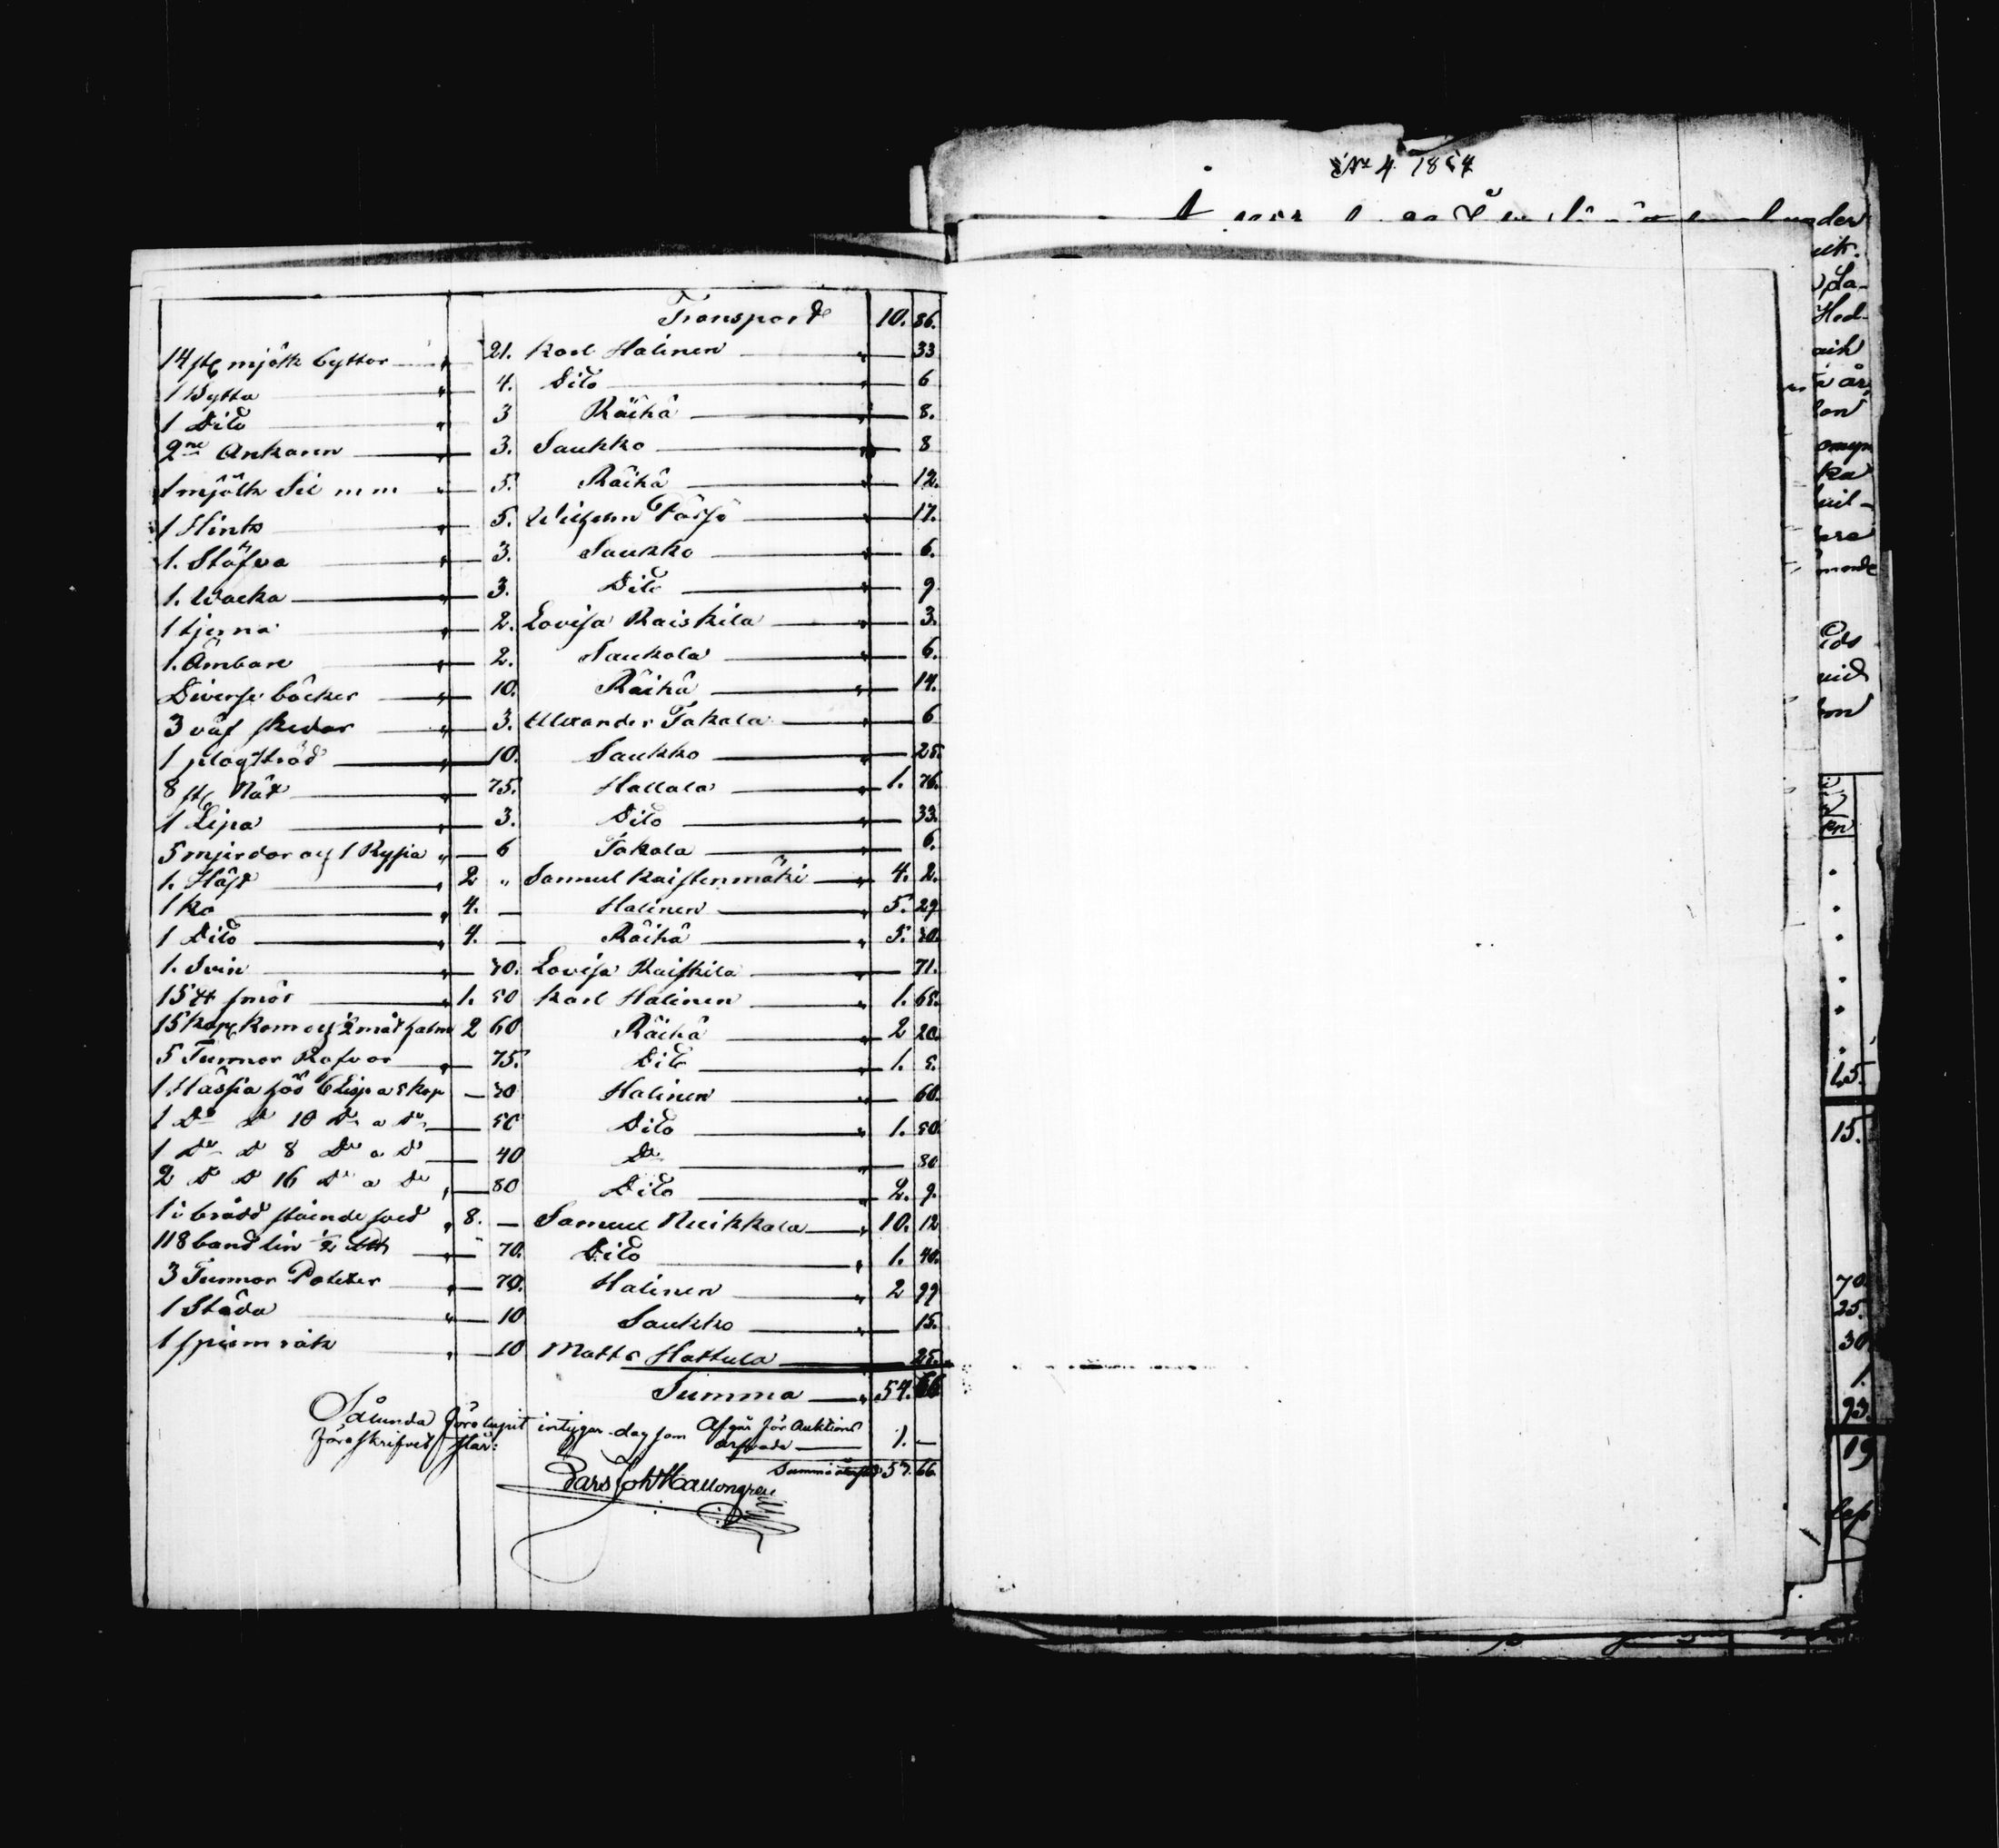 Transport 10. 86.
14 st mjölk byttor " 21. Karl Halinen " 33
1 Bytta " 4. Dito " 6
1 Dito " 3 Räihä " 8.
2ne Ankaren " 3. Saukko " 8
1 mjölk Sil m m " 5. Räihä " 12.
1 Hink " 5. Wilhelm " 17.
1. Stäfva " 3. Saukko " 6.
1. Wacka " 3. Dito " 9
1 tjerna " 2. Lovisa Raiskila " 3.
1. Ämbare " 2. Saukola " 6.
Diverse böcker " 10. Räihä " 14.
3 väf skedar " 3. Alexander Takala " 6
1 plogstråd " 10. Saukko " 25.
8 st Nät " 75. Hallala " 1. 76.
1 Lipa " 3. Dito " 33.
5 mjerdor och 1 Ryssia " 6 Takala " 6.
1. Häst " 2 " Samuel Kaistenmäki " 4. 2.
1 Ko " 4. — Halinen " 5. 29
1 Dito " 4. — Räihä " 5. 20.
1. Svin " 70. Lovisa Raiskila " 71.
15 ℔ smör " 1. 50 Karl Halinen " 1. 65.
15 kapp Korn och ½ måt halm 2 60 Räihä " 2 20.
5 Tunnor Rofvor " 75. Dito " 1. 5.
1 Hässia hös 6 Lispd a 5 kop — 30 Halinen " 60.
1 Do D 10 Do a Do 50 Dito " 1. 50.
1 Do D 8 Do a D 40 Do " 80
2 D D 16 D a Do " 80 Dito " 2. 9.
1 i brådd stående sved " 8. — Samuel Ruikkala " 10. 12
118 band lin ½ " 70. Dito " 1. 40.
3 Tunnor Potäter " 70. Halinen " 2 99
1 Ståda " 10 Saukko " 15.
1 spinnråk " 10 Matts Hattula 25.
Summa " 54. 66
Sålunda förelupit intygar dag som Afgår för Auktions
föreskrifvet står: arfvode 1. —
Summa 57. 66.
Lars Joh Hallongren
No 4. 1854
der
uk.
Hed-
aih
år,
on
ka
uil-
era
Eds
vid
on
15.
15.
70.
25.
30
1.
93.
19